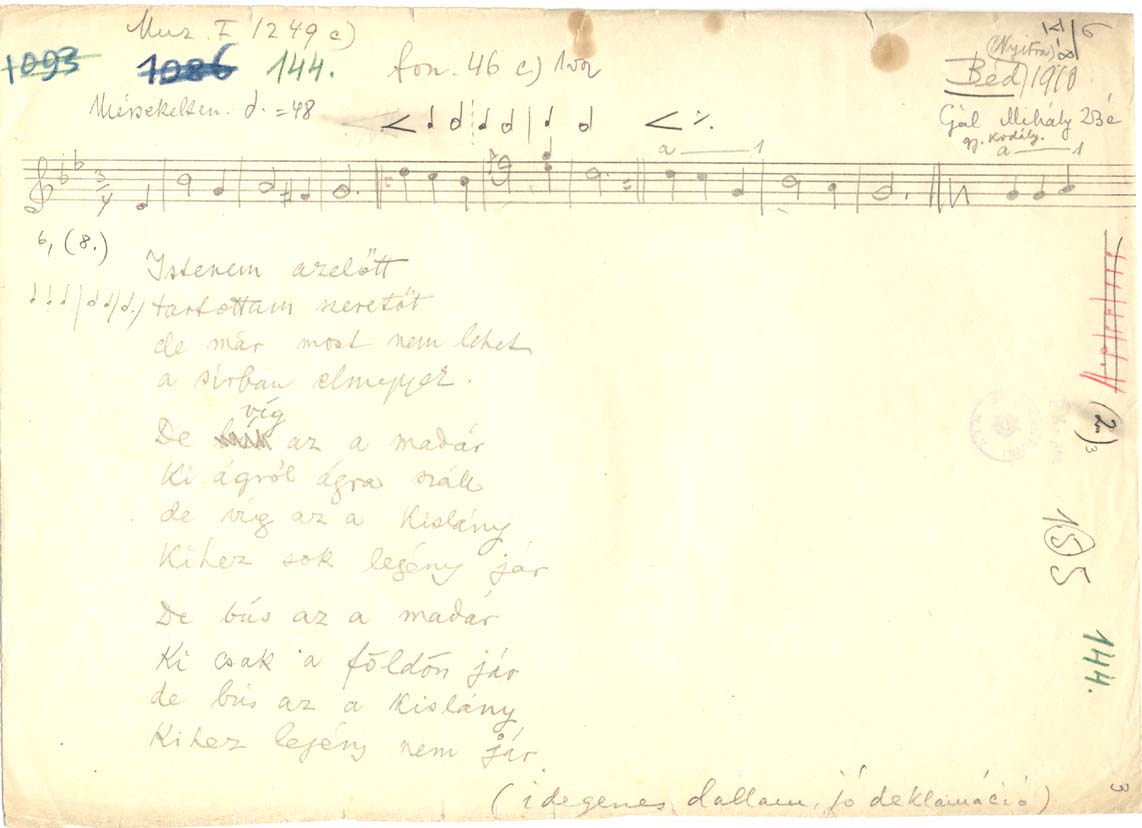 Muz. F. 1249 c)
1093 1086 144. fon. 46 c)
(Nyitra)
Béd 1910
Mérsekelten. = 48
Gál Mihály
gy. Kodály.
a 1
a 1
3/4
6, (8.)
Istenem azelőtt
tartottam szeretőt
de már most nem lehet
a sirban elmegyek.
víg
De az a madár
Ki ágról ágra száll
de víg az a Kislány
Kihez sok legény jár
De bús az a madár
Ki csak a földön jár
de bús az a Kislány
Kihez legény nem jár.
(idegenes dallam, jó deklamáció)
(2.)3
15)5
144.
3